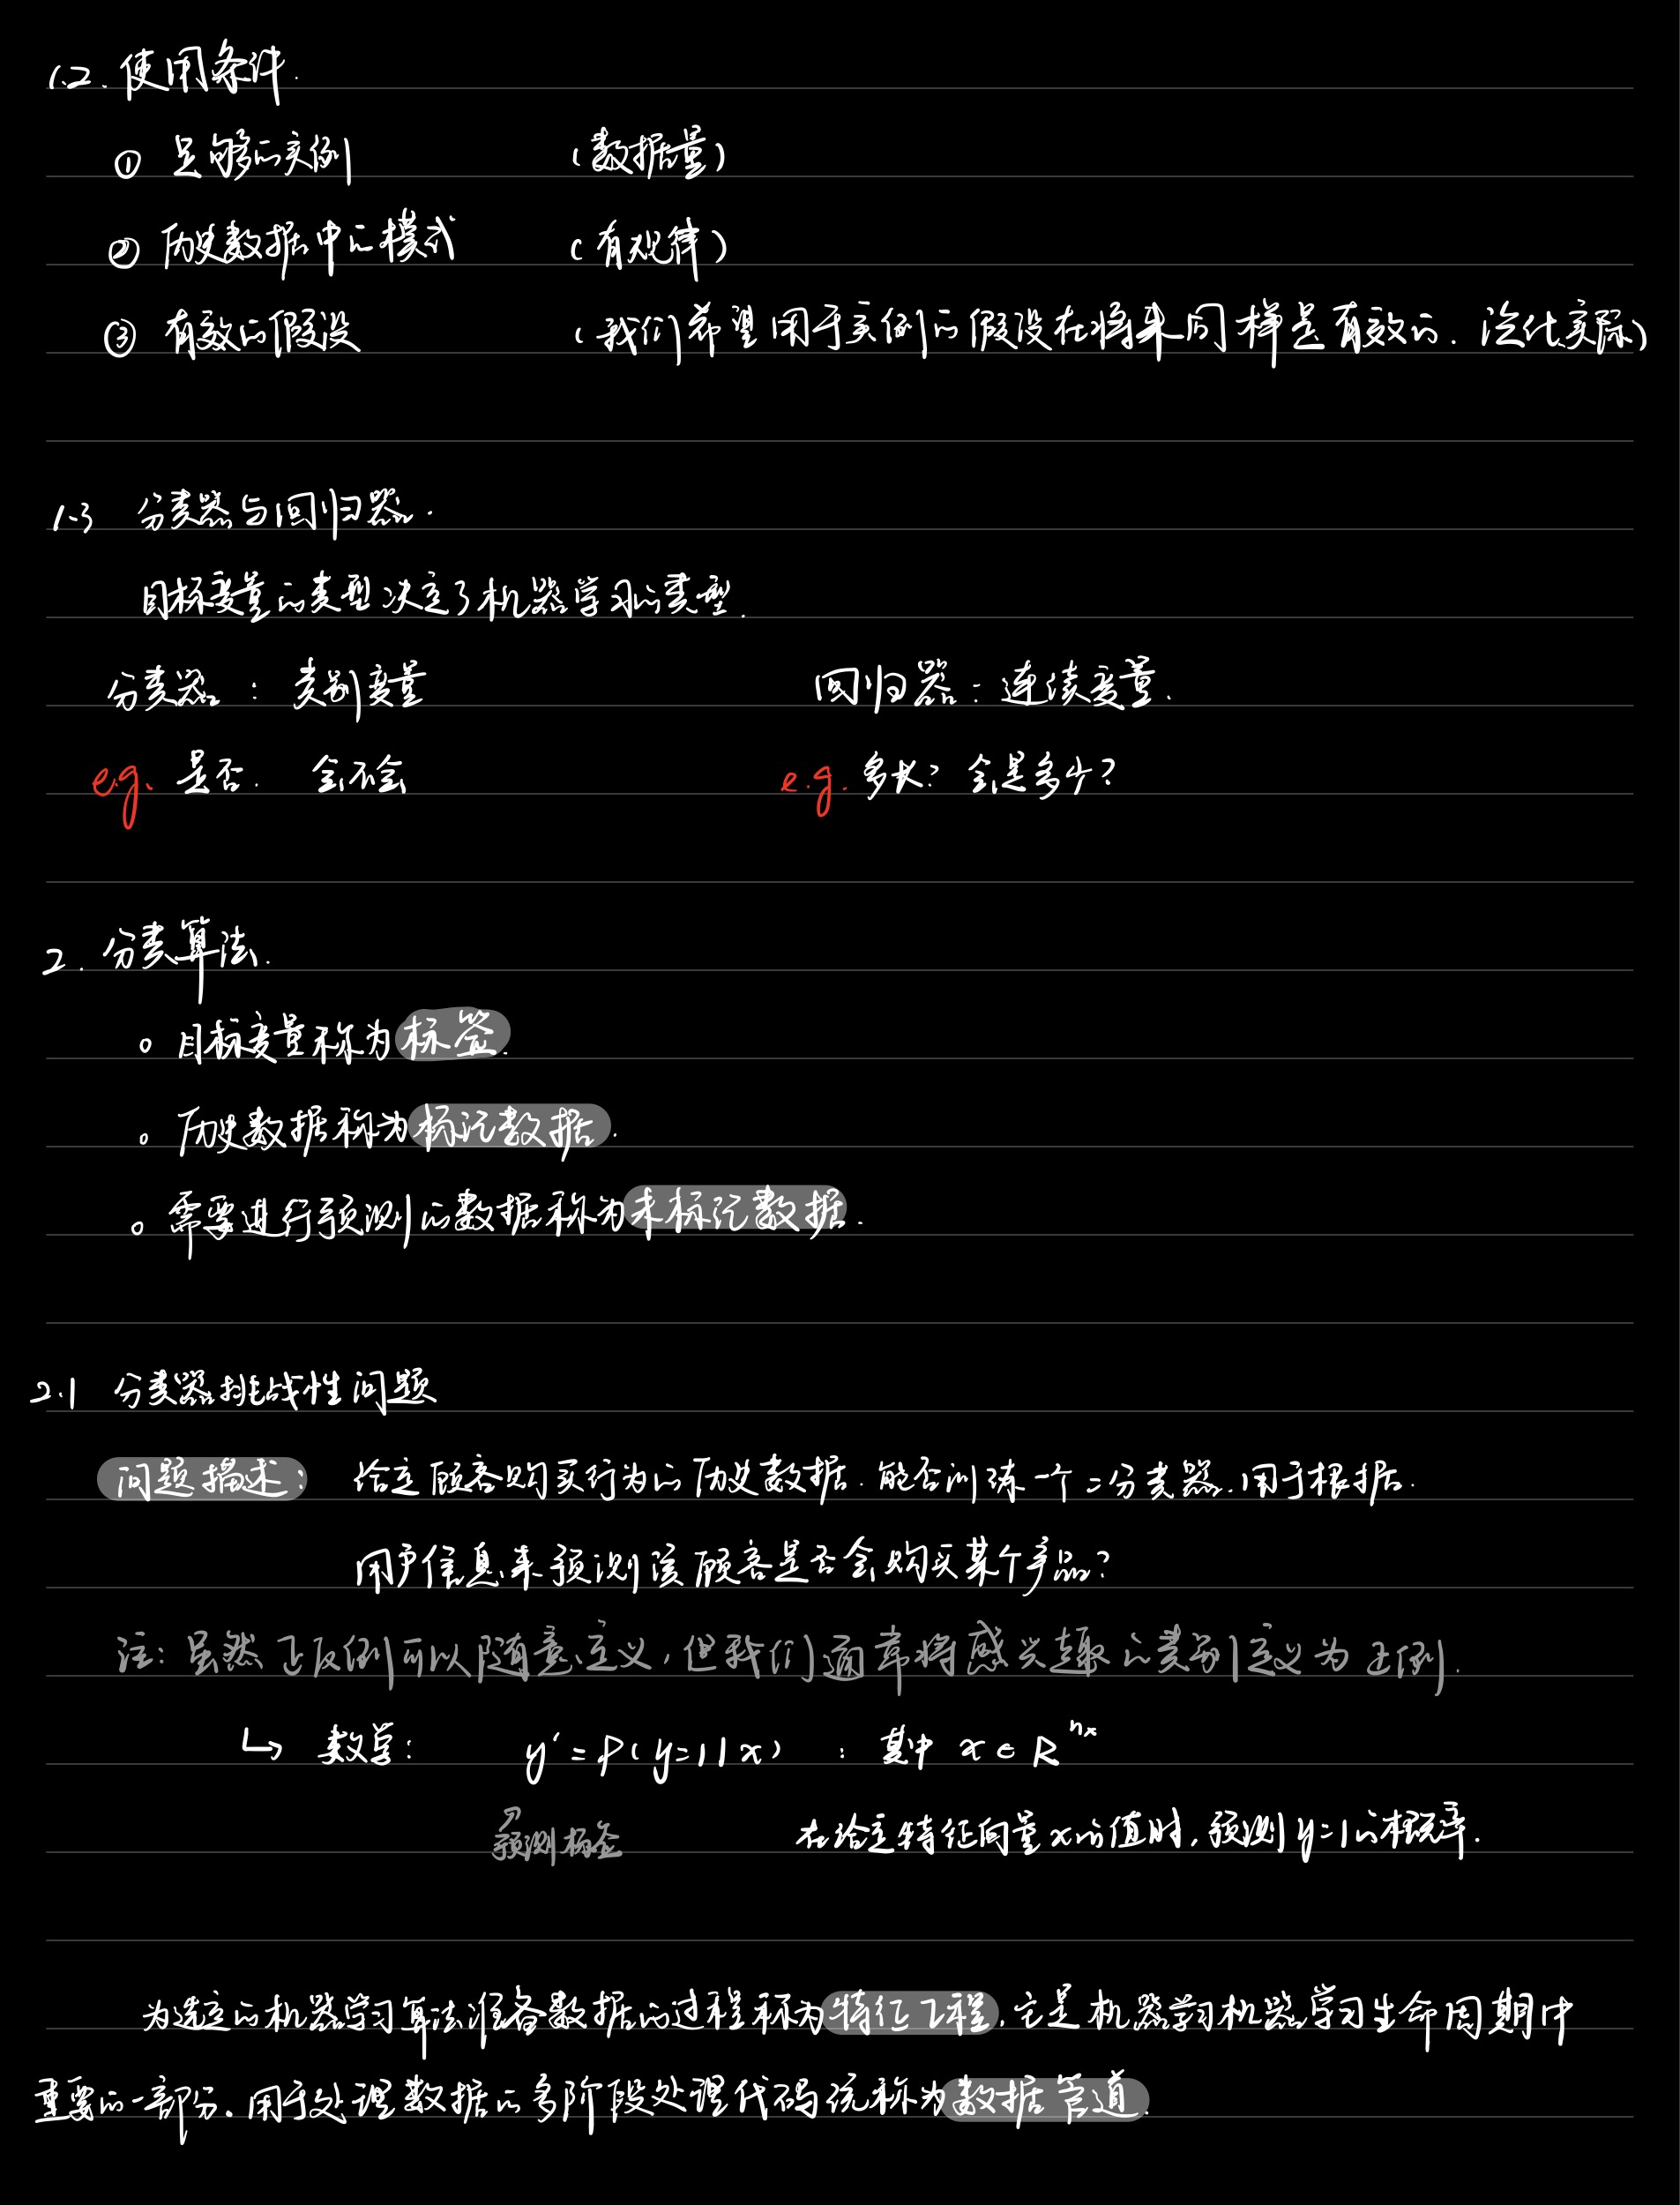 1.2. 使用条件.
① 足够的实例 (数据量)
② 历史数据中的模式 (有规律)
③ 有效的假设 (我们希望用于实例的假设在将来同样是有效的. 泛化实际)
1.3 分类器与回归器.
目标变量的类型决定了机器学习的类型.
分类器: 类别变量 回归器: 连续变量.
e.g. 是否. 会不会 e.g. 多长? 会是多少?
2. 分类算法.
。目标变量称为标签.
。历史数据称为标记数据.
。需要进行预测的数据称为未标记数据.
2.1 分类器挑战性问题
问题描述: 给定顾客购买行为的历史数据. 能否训练一个二分类器. 用于根据.
用户信息来预测该顾客是否会购买某个产品?
注: 虽然正反例可以随意定义, 但我们通常将感兴趣的类别定义为正例.
↳ 数学: y' = P(y=1|x) : 其中 x ∈ R^{n_x}
预测标签 在给定特征向量x的值时, 预测y=1的概率.
为选定的机器学习算法准备数据的过程称为特征工程, 它是机器学习机器学习生命周期中
重要的一部分. 用于处理数据的多阶段处理代码统称为数据管道.